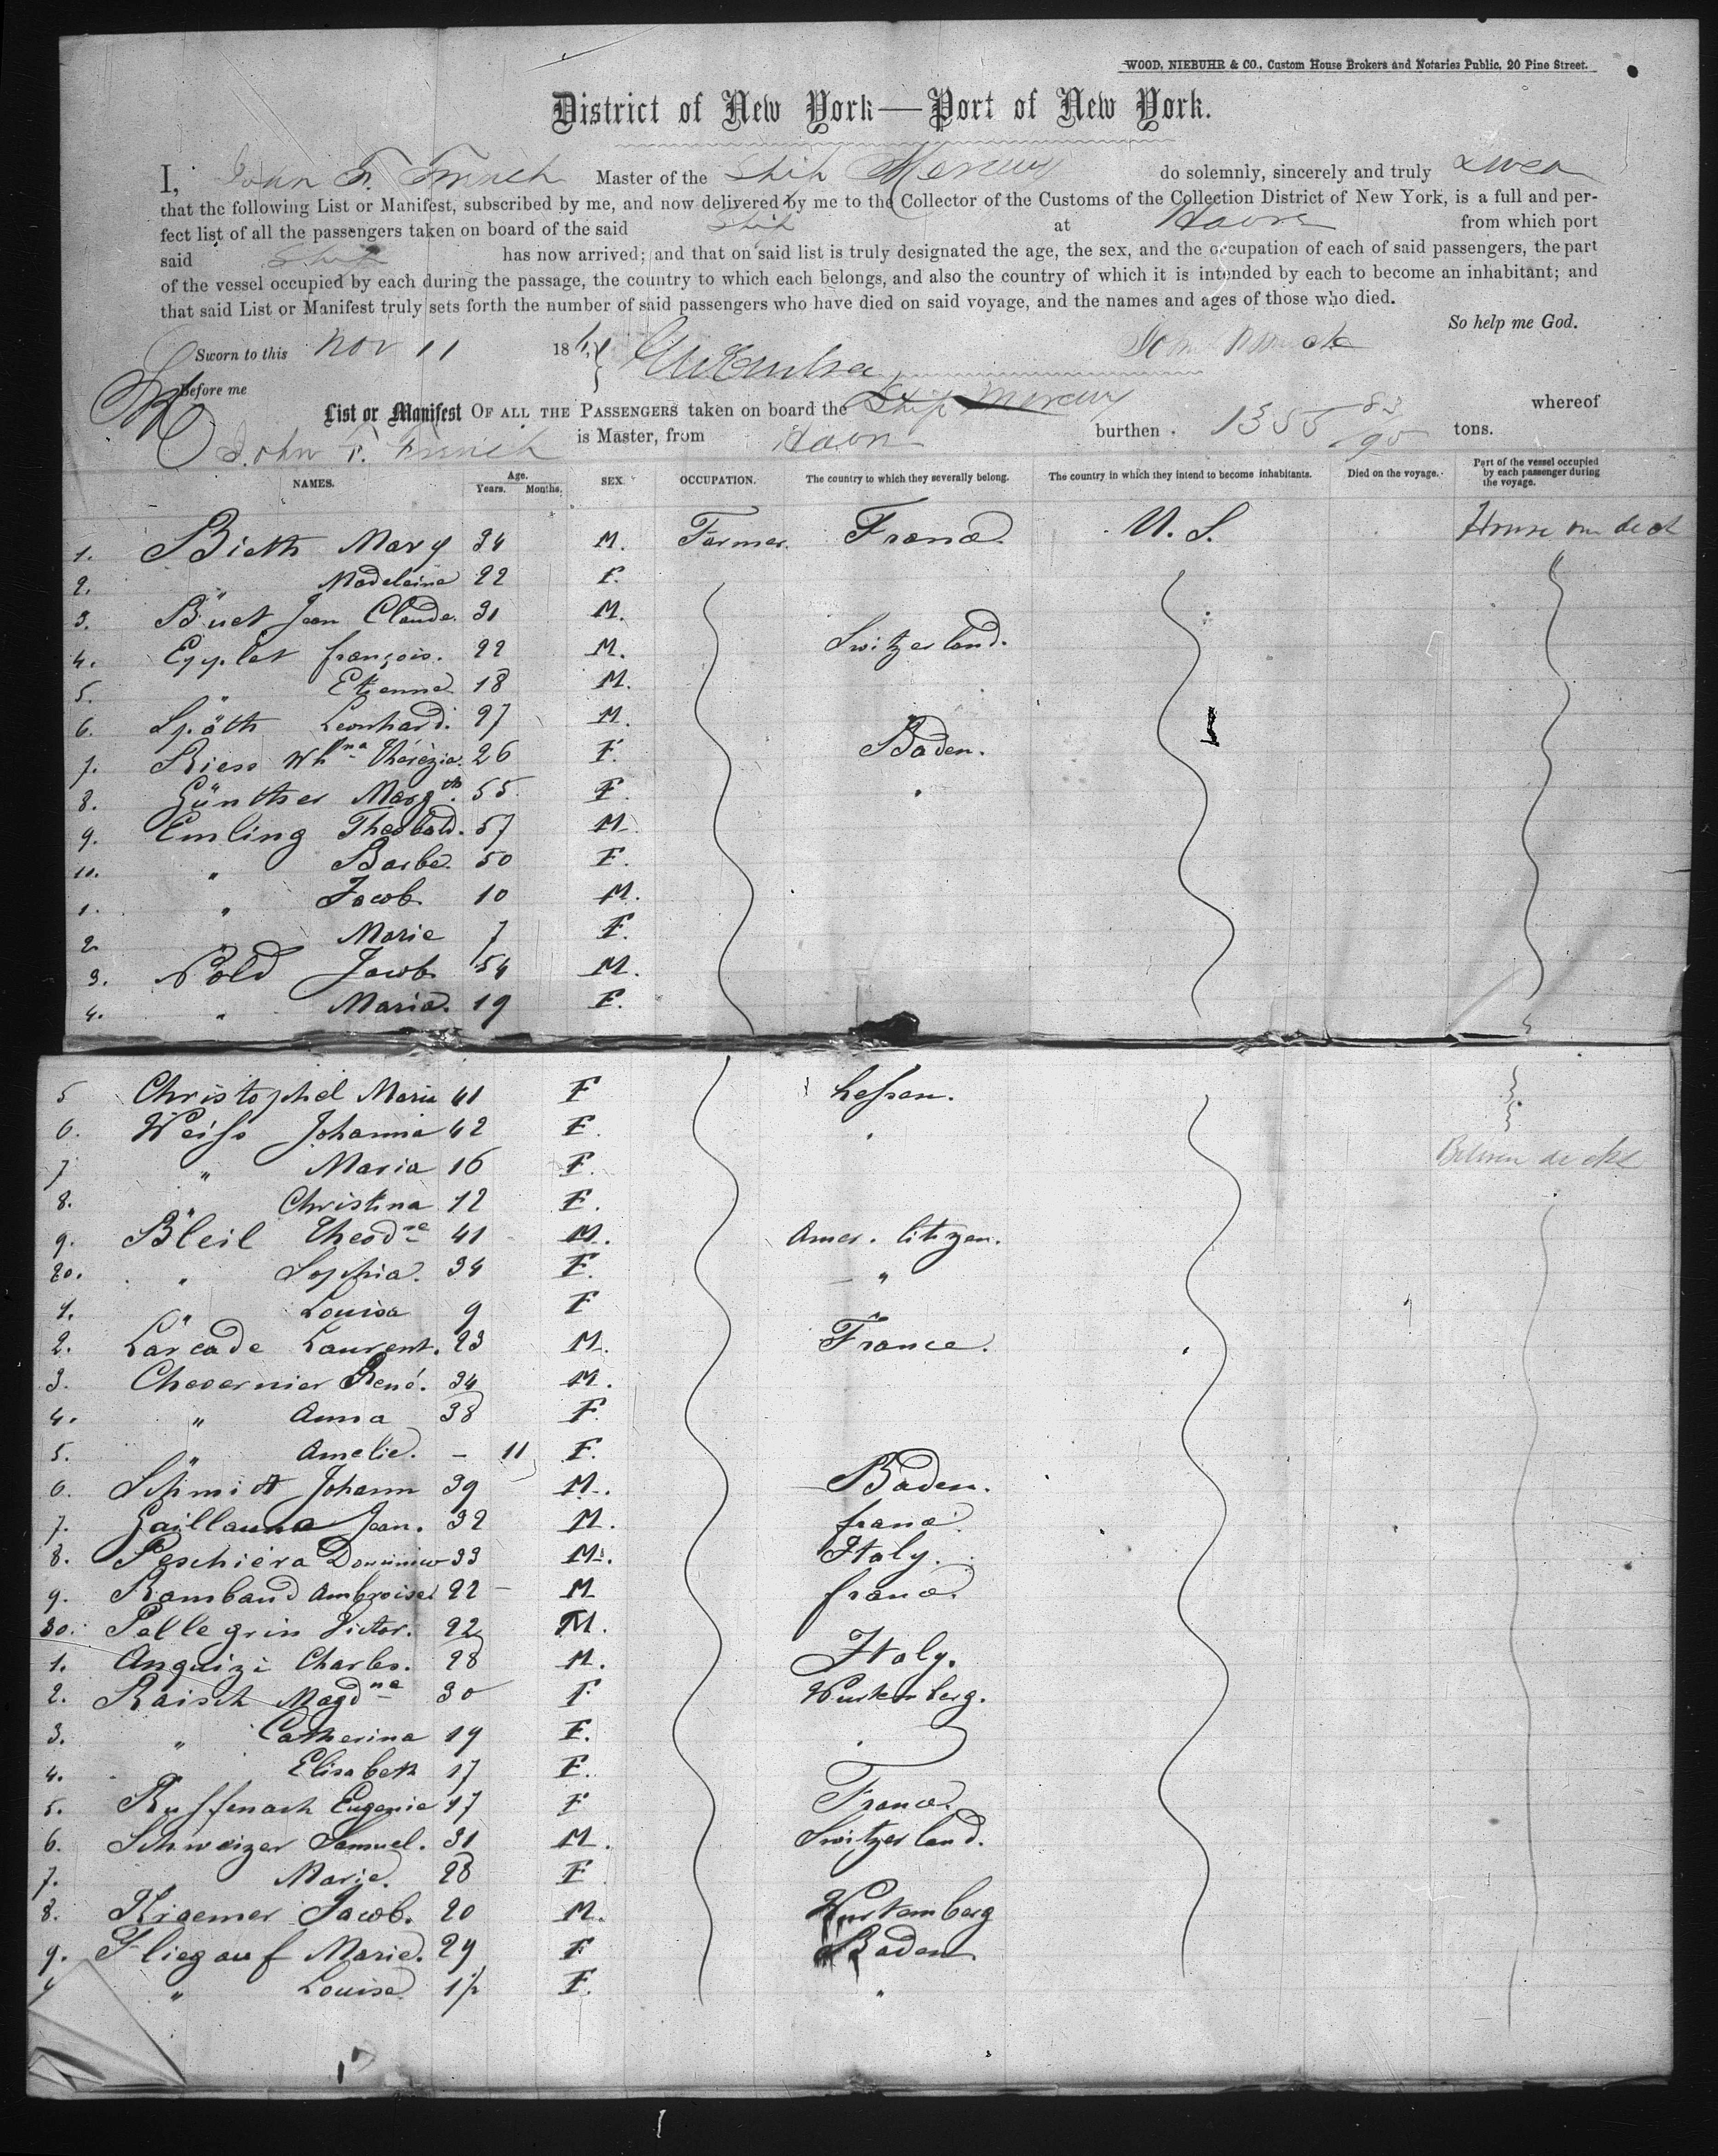 WOOD, NIEBUHR & CO., Custom House Brokers and Notaries Public, 20 Pine Street.
District of New York—Port of New York.
I, John F. French Master of the Ship Mercury do solemnly, sincerely and truly swear
that the following List or Manifest, subscribed by me, and now delivered by me to the Collector of the Customs of the Collection District of New York, is a full and per-
fect list of all the passengers taken on board of the said Ship at Havre from which port
said Ship has now arrived; and that on said list is truly designated the age, the sex, and the occupation of each of said passengers, the part
of the vessel occupied by each during the passage, the country to which each belongs, and also the country of which it is intended by each to become an inhabitant; and
that said List or Manifest truly sets forth the number of said passengers who have died on said voyage, and the names and ages of those who died.
So help me God.
Sworn to this Nov 11 18
Before me
List or Manifest OF ALL THE PASSENGERS taken on board the Ship Mercury whereof
John F. French is Master, from Havre burthen tons.
NAMES. Age. Years. Months. SEX. OCCUPATION. The country to which they severally belong. The country in which they intend to become inhabitants. Died on the voyage. Part of the vessel occupied by each passenger during the voyage.
1. Bieth Mary 34 M. Farmer. France. U. S. House on deck
2. " Madeleine 22 F.
3. Buet Jean Claude. 31 M.
4. Egylet françois. 22 M. Switzerland.
5. " Etienne 18 M.
6. Späth Leonhard. 27 M.
7. Riess Whna Thérèzia. 26 F. Baden.
8. Günther Margth. 55 F. "
9. Emling Theobald. 57 M.
10. " Barbe. 50 F.
1. " Jacob 10 M.
2. " Marie 7 F.
3. Nold Jacob 54 M.
4. " Maria. 19 F.
5 Christophel Maria 41 F hessen.
6. Weiss Johanna 42 F. "
7 " Maria 16 F. Between decks
8. " Christina 12 F.
9. Bleil Theodre 41 M. Amer. Citizen.
20. " Sophia. 34 F. "
1. " Louisa 9 F
2. Larcade Laurent. 23 M. France.
3. Chevernier René. 34 M.
4. " Anna 38 F.
5. " Amelie. – 11 F.
6. Schmidt Johann 39 M. Baden.
7. Gaillauma Jean. 32 M. france.
8. Peschiera Dominico 33 M. Italy.
9. Rambaud Ambroise 22 M france.
30. Pellegrin Victor. 22 M.
1. Anguizi Charles. 28 M. Italy.
2. Raisch Magdne 30 F Wurtemberg.
3. " Catherina 19 F. "
4. " Elisabeth 17 F.
5. Ruffenach Eugenie 17 F France.
6. Schweizer Samuel. 31 M. Switzerland.
7. Marie. 28 F
8. Kraemer Jacob. 20 M. Wurtemberg
9. Fliegauf Marie. 29 F Baden
" Louise 1/2 F. "